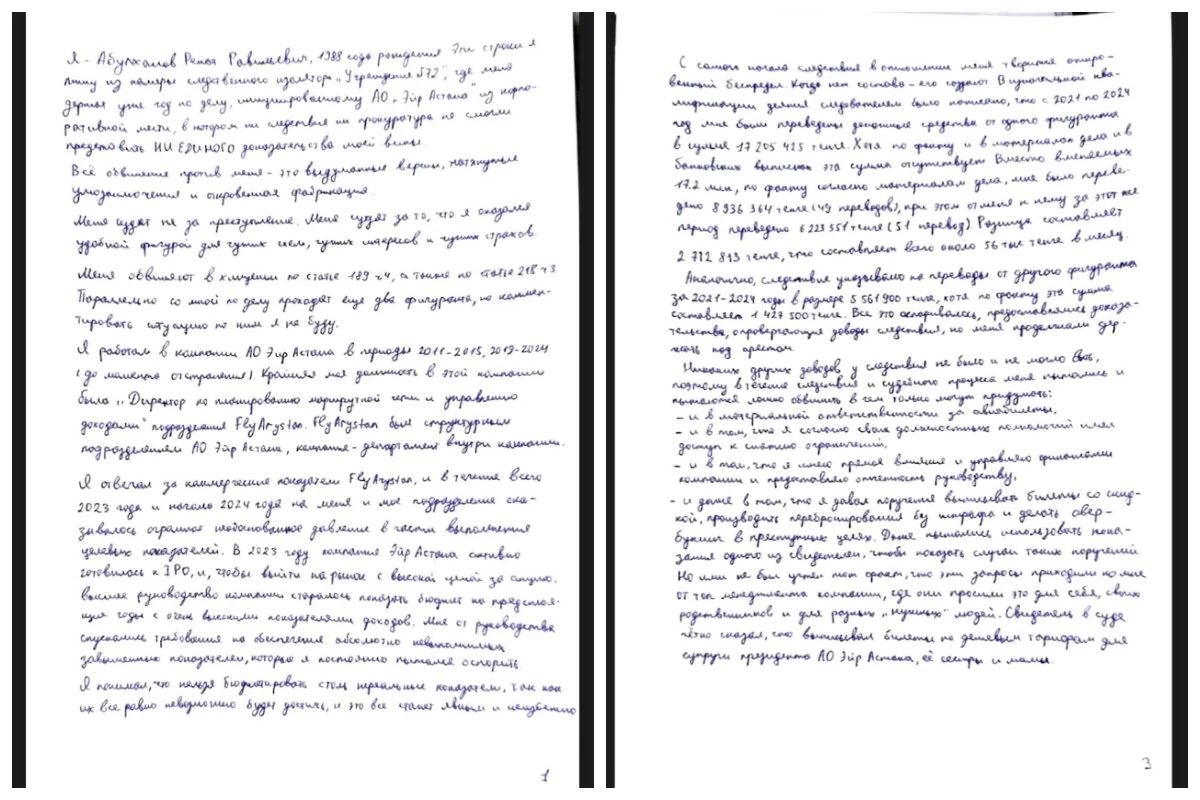 Я - Абулханов Ренат Равильевич, 1988 года рождения Эти строки я
пишу из камеры следственного изолятора „Учреждения №72", где меня
держат уже год по делу, инициированному АО „Эйр Астана" из корпо-
ративной мести, в котором ни следствие ни прокуратура не смогли
предоставить НИ ЕДИНОГО доказательства моей вины.
Всё обвинение против меня - это выдуманные версии, натянутые
умозаключения и откровенная фабрикация.
Меня судят не за преступление. Меня судят за то, что я оказался
удобной фигурой для чужих схем, чужих интересов и чужих страхов.
Меня обвиняют в хищении по статье 189 ч4, а также по статье 218 ч3
Параллельно со мной по делу проходят еще два фигуранта, но коммен-
тировать ситуацию по ним я не буду.
Я работал в компании АО Эйр Астана в периоды 2011-2015, 2019-2024
(до момента отстранения). Крайняя моя должность в этой компании
была „Директор по планированию маршрутной сети и управлению
доходами" подразделения FlyArystan. FlyArystan был структурным
подразделением АО Эйр Астана, компания - департамент внутри компании.
Я отвечал за коммерческие показатели FlyArystan, и в течение всего
2023 года и начала 2024 года на меня и мое подразделение ока-
зывалось огромное необоснованное давление в части выполнения
целевых показателей. В 2023 году компания Эйр Астана активно
готовилась к IPO, и, чтобы выйти на рынок с высокой ценой за акцию,
высшее руководство компании старалось показать бюджет на предстоя-
щие годы с очень высокими показателями доходов. Мне от руководства
спускались требования на обеспечение абсолютно невыполнимых
завышенных показателей, которые я постоянно пытался оспорить
Я понимал, что нельзя бюджетировать столь нереальные показатели, так как
их все равно невозможно будет достичь, и это все станет явным и неизбежно
1
С самого начала следствия в отношении меня творится откро-
венный беспредел. Когда нет состава - его создают. В изначальной ква-
лификации деяния следователем было написано, что с 2021 по 2024
год мне были переведены денежные средства от одного фигуранта
в сумме 17 205 425 тенге. Хотя по факту и в материалах дела и в
банковских выписках эта сумма отсутствует. Вместо вменяемых
17.2 млн, по факту согласно материалам дела, мне было переве-
дено 8 936 364 тенге (49 переводов), при этом от меня к нему за этот же
период переведено 6 223 551 тенге (51 перевод) Разница составляет
2 712 813 тенге, что составляет всего около 56 тыс тенге в месяц.
Аналогично, следствие указывало на переводы от другого фигуранта
за 2021-2024 годы в размере 5 561 900 тенге, хотя по факту эта сумма
составляет 1 427 500 тенге. Все это оспаривалось, предоставлялись доказа-
тельства, опровергающие доводы следствия, но меня продолжали дер-
жать под арестом.
Никаких других доводов у следствия не было и не могло быть,
поэтому в течение следствия и судебного процесса меня пытались и
пытаются ложно обвинить в чем только могут придумать:
- и в материальной ответственности за авиабилеты,
- и в том, что я согласно своих должностных полномочий имел
доступ к снятию ограничений,
- и в том, что я имею прямое влияние и управляю финансами
компании и предоставляю отчетность руководству,
- и даже в том, что я давал поручения выписывать билеты со скид-
кой, производить перебронирования без штрафа и делать овер-
букинг в преступных целях. Даже пытались использовать пока-
зания одного из свидетелей, чтобы показать случаи таких поручений
Но ими не был учтен тот факт, что эти запросы приходили ко мне
от топ менеджмента компании, где они просили это для себя, своих
родственников и для разных „нужных" людей. Свидетель в суде
четко сказал, что выписывал билеты по дешевым тарифам для
супруги президента АО Эйр Астана, её сестры и мамы.
3